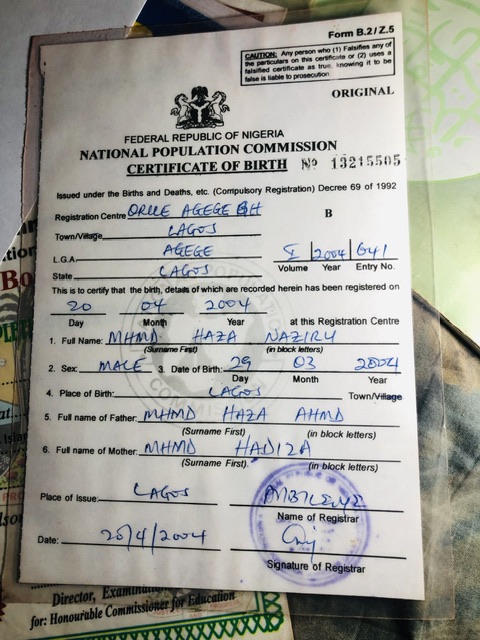 Form B.2/Z.5
CAUTION: Any person who (1) Falsifies any of
the particulars on this certificate or (2) uses a
falsified certificate as true, knowing it to be
false is liable to prosecution.
ORIGINAL
FEDERAL REPUBLIC OF NIGERIA
NATIONAL POPULATION COMMISSION
CERTIFICATE OF BIRTH № 13215505
Issued under the Births and Deaths, etc. (Compulsory Registration) Decree 69 of 1992
Registration Centre ORILE AGEGE GH B
Town/Village LAGOS
L.G.A AGEGE I 2004 641
State LAGOS Volume Year Entry No.
This is to certify that the birth, details of which are recorded herein has been registered on
20 04 2004
Day Month Year at this Registration Centre
1. Full Name: MHMD HAZA NAZIRU
(Surname First) (in block letters)
2. Sex: MALE 3. Date of Birth: 29 03 2004
Day Month Year
4. Place of Birth: LAGOS Town/Village
5. Full name of Father: MHMD HAZA AHMD
(Surname First) (in block letters)
6. Full name of Mother: MHMD HADIZA
(Surname First) (in block letters)
Place of Issue: LAGOS
Name of Registrar
Date: 20/4/2004
Signature of Registrar
Director, Examination
for: Honourable Commissioner for Education